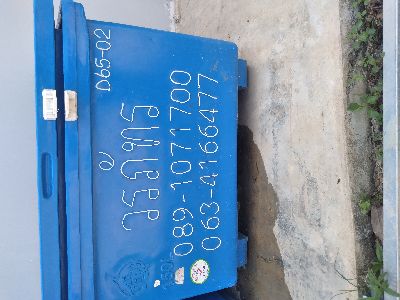 D65-02
วรภัทร
089-1071700
063-4166477